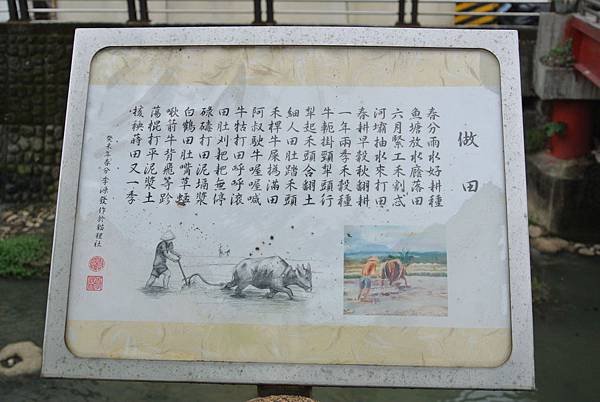 做田
春分雨水好耕種
魚塘放水廕落田
六月緊工禾割忒
河壩抽水來打田
春耕早穀秋翻耕
一年兩季禾穀種
牛軛掛頸犁頭行
犁起禾頭合翻土
細人田肚踏禾頭
禾稈牛屎撝滿田
阿叔駛牛喔喔喊
牛牯打田呼呼滾
田肚刈耙耙無停
碌碡打田泥塥漿
白鶴田肚嘴草蜢
啾箭牛背飛等趻
蕩棍打平泥漿土
拔秧蒔田又一季
癸未年春分李源發作於貓裡社